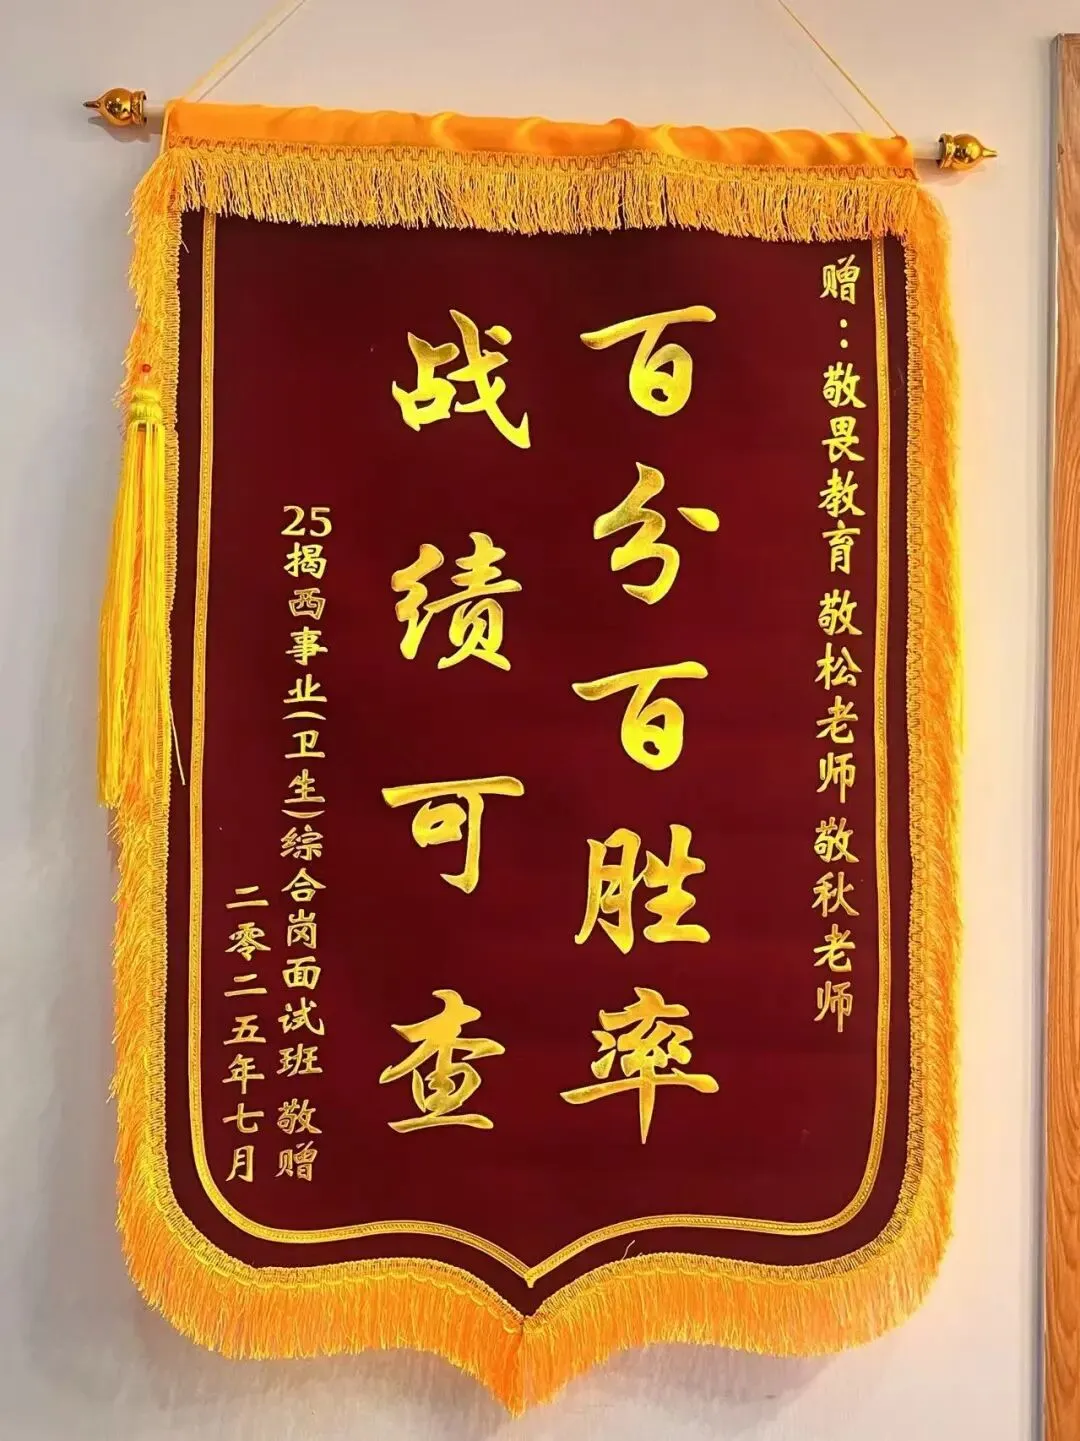 赠：敬畏教育 敬松老师 敬秋老师
百分百胜率
战绩可查
25揭西事业(卫生)综合岗面试班 敬赠
二零二五年七月